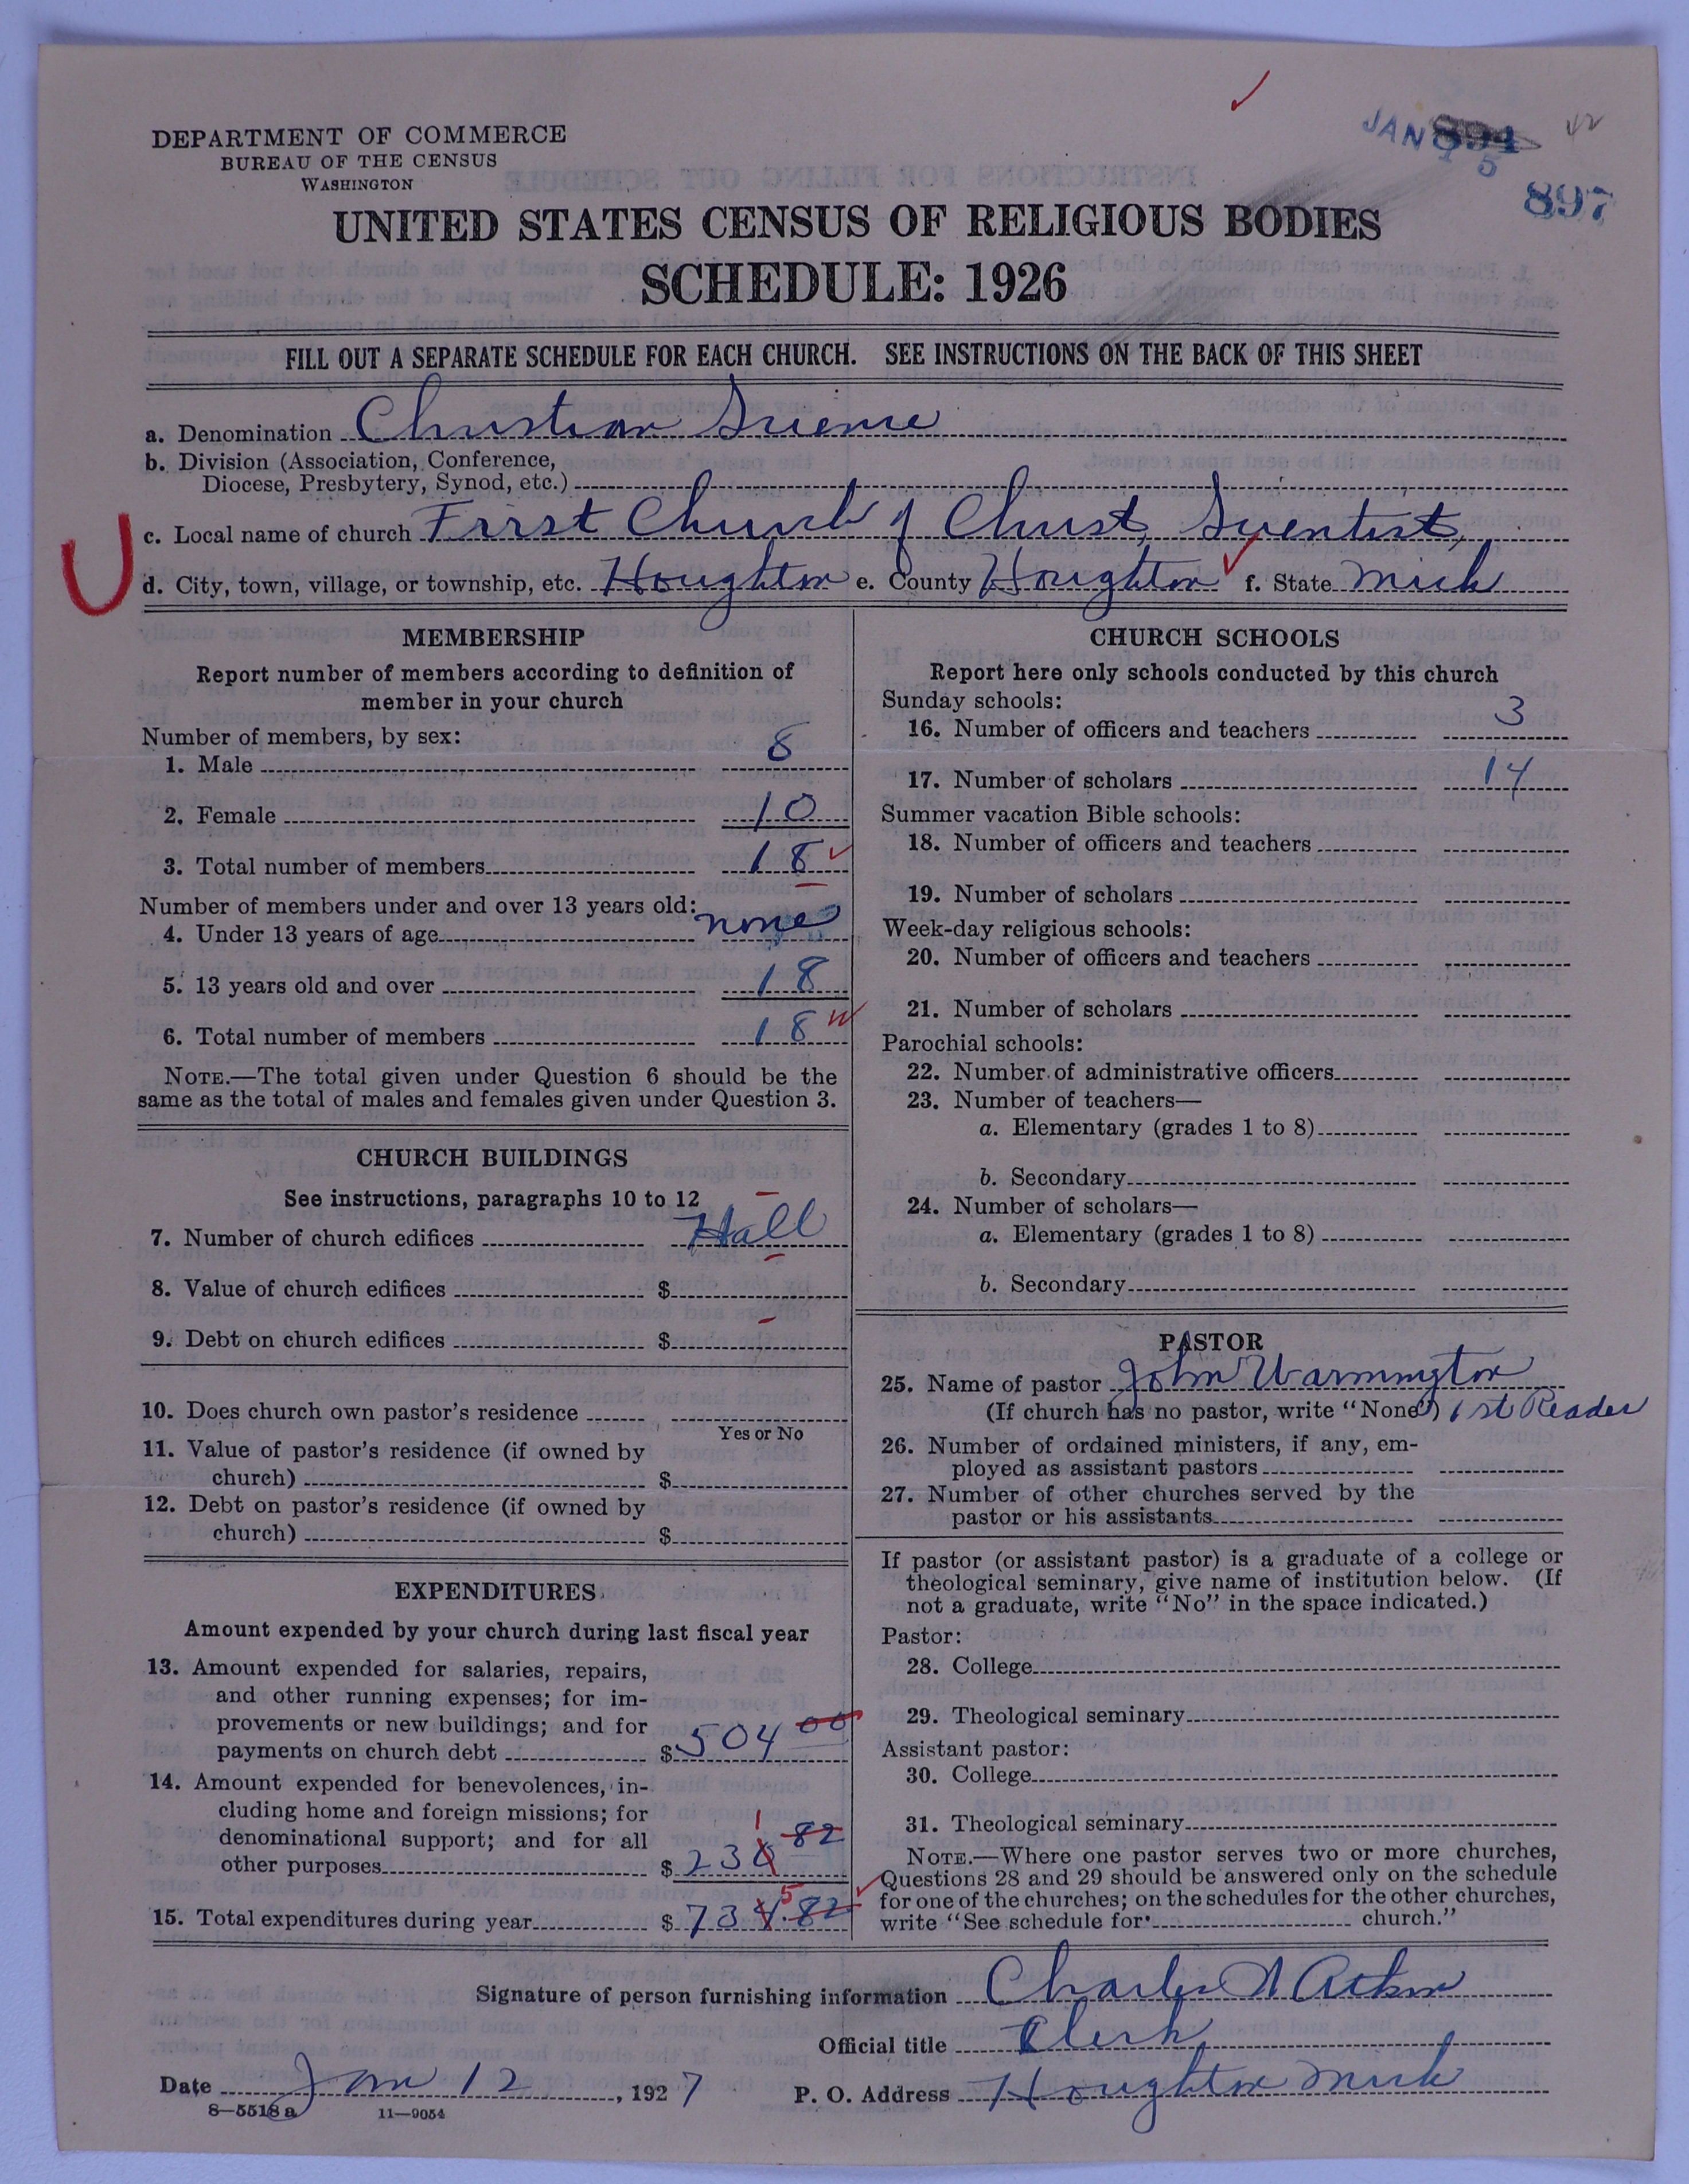 JAN 15
894
897
DEPARTMENT OF COMMERCE
BUREAU OF THE CENSUS
WASHINGTON
UNITED STATES CENSUS OF RELIGIOUS BODIES
SCHEDULE: 1926
FILL OUT A SEPARATE SCHEDULE FOR EACH CHURCH. SEE INSTRUCTIONS ON THE BACK OF THIS SHEET
a. Denomination Christian Science
b. Division (Association, Conference,
Diocese, Presbytery, Synod, etc.)
c. Local name of church First Church of Christ, Scientist,
d. City, town, village, or township, etc. Houghton e. County Houghton f. State Mich
MEMBERSHIP
Report number of members according to definition of
member in your church
Number of members, by sex:
1. Male 8
2. Female 10
3. Total number of members 18
Number of members under and over 13 years old:
4. Under 13 years of age none
5. 13 years old and over 18
6. Total number of members 18
NOTE.—The total given under Question 6 should be the
same as the total of males and females given under Question 3.
CHURCH BUILDINGS
See instructions, paragraphs 10 to 12
7. Number of church edifices Hall
8. Value of church edifices $
9. Debt on church edifices $
10. Does church own pastor's residence
Yes or No
11. Value of pastor's residence (if owned by
church) $
12. Debt on pastor's residence (if owned by
church) $
EXPENDITURES
Amount expended by your church during last fiscal year
13. Amount expended for salaries, repairs,
and other running expenses; for im-
provements or new buildings; and for
payments on church debt $ 504 00
14. Amount expended for benevolences, in-
cluding home and foreign missions; for
denominational support; and for all
1
other purposes $ 230 82
5
15. Total expenditures during year $ 734.82
CHURCH SCHOOLS
Report here only schools conducted by this church
Sunday schools:
16. Number of officers and teachers 3
17. Number of scholars 14
Summer vacation Bible schools:
18. Number of officers and teachers
19. Number of scholars
Week-day religious schools:
20. Number of officers and teachers
21. Number of scholars
Parochial schools:
22. Number of administrative officers
23. Number of teachers—
a. Elementary (grades 1 to 8)
b. Secondary
24. Number of scholars—
a. Elementary (grades 1 to 8)
b. Secondary
PASTOR
25. Name of pastor John Warmington
(If church has no pastor, write "None") 1st Reader
26. Number of ordained ministers, if any, em-
ployed as assistant pastors
27. Number of other churches served by the
pastor or his assistants
If pastor (or assistant pastor) is a graduate of a college or
theological seminary, give name of institution below. (If
not a graduate, write "No" in the space indicated.)
Pastor:
28. College
29. Theological seminary
Assistant pastor:
30. College
31. Theological seminary
NOTE.—Where one pastor serves two or more churches,
Questions 28 and 29 should be answered only on the schedule
for one of the churches; on the schedules for the other churches,
write "See schedule for church."
Signature of person furnishing information Charles A Atkin
Official title Clerk
Date Jan 12, 1927 P. O. Address Houghton Mich
8—5518a 11—9054